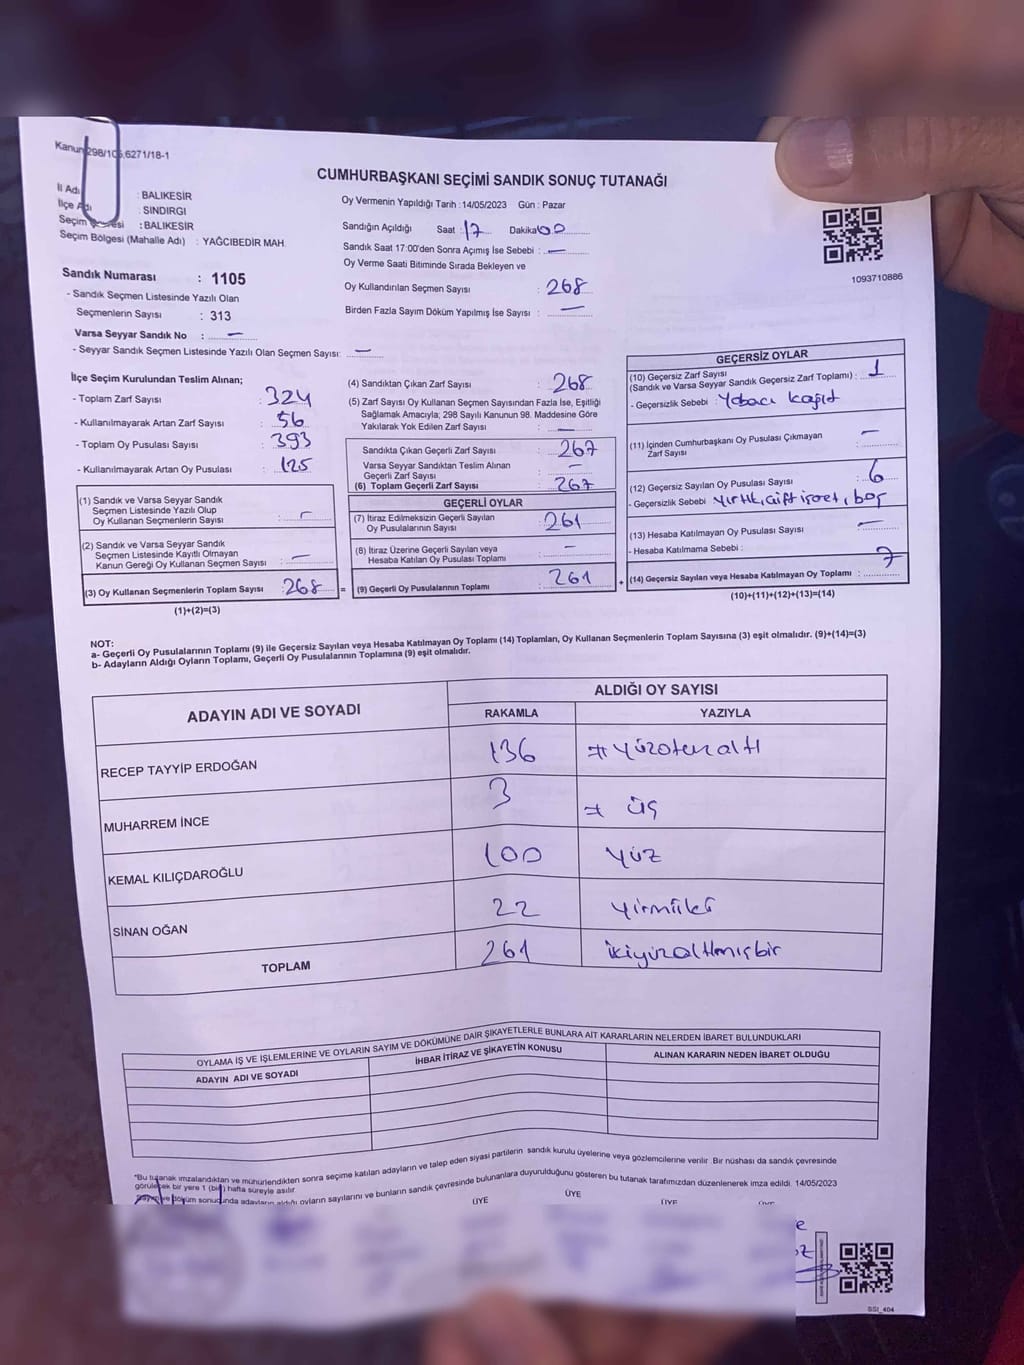 Kanun 298/105, 6271/18-1
CUMHURBAŞKANI SEÇİMİ SANDIK SONUÇ TUTANAĞI
İl Adı : BALIKESİR
İlçe Adı : SINDIRGI
Seçim Çevresi : BALIKESİR
Seçim Bölgesi (Mahalle Adı) : YAĞCIBEDİR MAH.
Oy Vermenin Yapıldığı Tarih : 14/05/2023 Gün : Pazar
Sandığın Açıldığı Saat : 17 Dakika 00
Sandık Saat 17:00'den Sonra Açımış İse Sebebi : —
Oy Verme Saati Bitiminde Sırada Bekleyen ve
Oy Kullandırılan Seçmen Sayısı : 268
Birden Fazla Sayım Döküm Yapılmış İse Sayısı : —
1093710886
Sandık Numarası : 1105
- Sandık Seçmen Listesinde Yazılı Olan
Seçmenlerin Sayısı : 313
Varsa Seyyar Sandık No : —
- Seyyar Sandık Seçmen Listesinde Yazılı Olan Seçmen Sayısı: —
İlçe Seçim Kurulundan Teslim Alınan;
- Toplam Zarf Sayısı : 324
- Kullanılmayarak Artan Zarf Sayısı : 56
- Toplam Oy Pusulası Sayısı : 393
- Kullanılmayarak Artan Oy Pusulası : 125
(1) Sandık ve Varsa Seyyar Sandık
Seçmen Listesinde Yazılı Olup
Oy Kullanan Seçmenlerin Sayısı :
(2) Sandık ve Varsa Seyyar Sandık
Seçmen Listesinde Kayıtlı Olmayan
Kanun Gereği Oy Kullanan Seçmen Sayısı : —
(3) Oy Kullanan Seçmenlerin Toplam Sayısı : 268 =
(1)+(2)=(3)
(4) Sandıktan Çıkan Zarf Sayısı : 268
(5) Zarf Sayısı Oy Kullanan Seçmen Sayısından Fazla İse, Eşitliği
Sağlamak Amacıyla; 298 Sayılı Kanunun 98. Maddesine Göre
Yakılarak Yok Edilen Zarf Sayısı : —
Sandıkta Çıkan Geçerli Zarf Sayısı : 267
Varsa Seyyar Sandıktan Teslim Alınan
Geçerli Zarf Sayısı : —
(6) Toplam Geçerli Zarf Sayısı : 267
GEÇERLİ OYLAR
(7) İtiraz Edilmeksizin Geçerli Sayılan
Oy Pusulalarının Sayısı : 261
(8) İtiraz Üzerine Geçerli Sayılan veya
Hesaba Katılan Oy Pusulası Toplamı : —
(9) Geçerli Oy Pusulalarının Toplamı : 261 +
GEÇERSİZ OYLAR
(10) Geçersiz Zarf Sayısı
(Sandık ve Varsa Seyyar Sandık Geçersiz Zarf Toplamı) : 1
- Geçersizlik Sebebi : Yabacı kağıt
(11) İçinden Cumhurbaşkanı Oy Pusulası Çıkmayan
Zarf Sayısı : —
(12) Geçersiz Sayılan Oy Pusulası Sayısı : 6
- Geçersizlik Sebebi Yırtık, çift işaret, boş
(13) Hesaba Katılmayan Oy Pusulası Sayısı : —
- Hesaba Katılmama Sebebi :
(14) Geçersiz Sayılan veya Hesaba Katılmayan Oy Toplamı : 7
(10)+(11)+(12)+(13)=(14)
NOT:
a- Geçerli Oy Pusulalarının Toplamı (9) ile Geçersiz Sayılan veya Hesaba Katılmayan Oy Toplamı (14) Toplamları, Oy Kullanan Seçmenlerin Toplam Sayısına (3) eşit olmalıdır. (9)+(14)=(3)
b- Adayların Aldığı Oyların Toplamı, Geçerli Oy Pusulalarının Toplamına (9) eşit olmalıdır.
ADAYIN ADI VE SOYADI ALDIĞI OY SAYISI
RAKAMLA YAZIYLA
RECEP TAYYİP ERDOĞAN 136 # yüzotuzaltı
MUHARREM İNCE 3 # üç
KEMAL KILIÇDAROĞLU 100 yüz
SİNAN OĞAN 22 yirmiiki
TOPLAM 261 ikiyüzaltmışbir
OYLAMA İŞ VE İŞLEMLERİNE VE OYLARIN SAYIM VE DÖKÜMÜNE DAİR ŞİKAYETLERLE BUNLARA AİT KARARLARIN NELERDEN İBARET BULUNDUKLARI
ADAYIN ADI VE SOYADI İHBAR İTİRAZ VE ŞİKAYETİN KONUSU ALINAN KARARIN NEDEN İBARET OLDUĞU
*Bu tutanak imzalandıktan ve mühürlendikten sonra seçime katılan adayların ve talep eden siyasi partilerin sandık kurulu üyelerine veya gözlemcilerine verilir. Bir nüshası da sandık çevresinde
görülecek bir yere 1 (bir) hafta süreyle asılır.
Sayım ve döküm sonucunda adayların aldığı oyların sayılarını ve bunların sandık çevresinde bulunanlara duyurulduğunu gösteren bu tutanak tarafımızdan düzenlenerek imza edildi. 14/05/2023
ÜYE ÜYE ÜYE
SSI_404